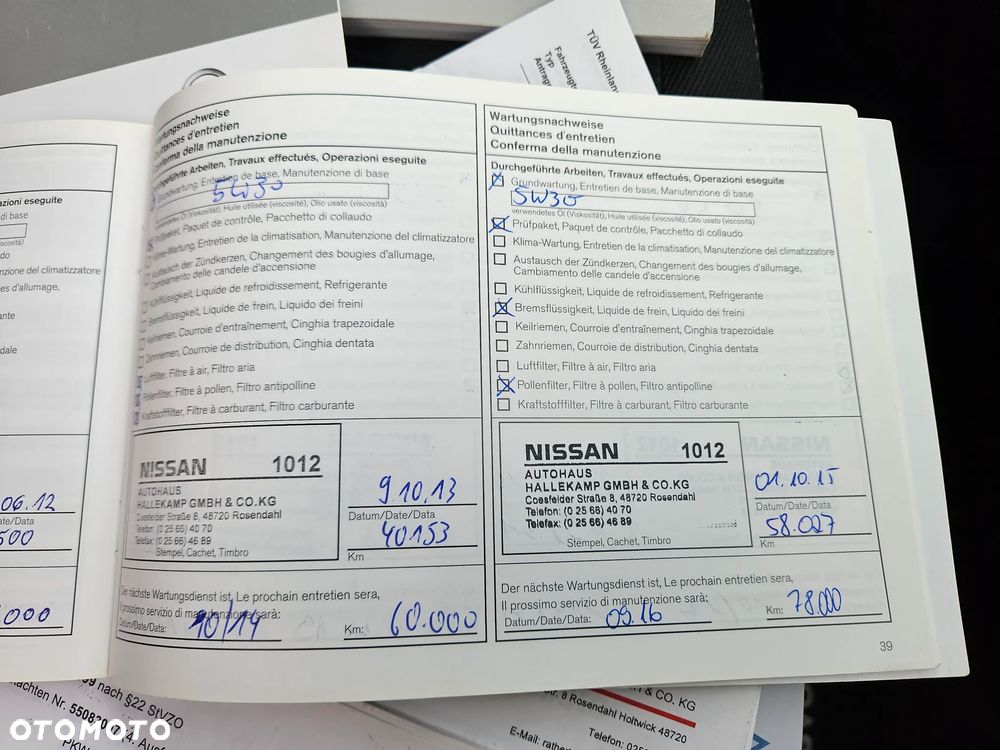 TÜV Rheinlan
Fahrzeugt
Typ
Antrags
azioni eseguite
di base
viscosità)
do
nzione del climatizzatore
es d'allumage,
ante
dale
06.12
ate/Data
500
.000
Wartungsnachweise
Quittances d'entretien
Conferma della manutenzione
Durchgeführte Arbeiten, Travaux effectués, Operazioni eseguite
Grundwartung, Entretien de base, Manutenzione di base
5W30
verwendetes Öl (Viskosität), Huile utilisée (viscosité), Olio usato (viscosità)
Prüfpaket, Paquet de contrôle, Pacchetto di collaudo
Klima-Wartung, Entretien de la climatisation, Manutenzione del climatizzatore
Austausch der Zündkerzen, Changement des bougies d'allumage,
Cambiamento delle candele d'accensione
Kühlflüssigkeit, Liquide de refroidissement, Refrigerante
Bremsflüssigkeit, Liquide de frein, Liquido dei freini
Keilriemen, Courroie d'entraînement, Cinghia trapezoidale
Zahnriemen, Courroie de distribution, Cinghia dentata
Luftfilter, Filtre à air, Filtro aria
Pollenfilter, Filtre à pollen, Filtro antipolline
Kraftstofffilter, Filtre à carburant, Filtro carburante
NISSAN 1012
AUTOHAUS
HALLEKAMP GMBH & CO.KG
Coesfelder Straße 8, 48720 Rosendahl
Telefon: (0 25 66) 40 70
Telefax: (0 25 66) 46 89
Stempel, Cachet, Timbro
9.10.13
Datum/Date/Data
40153
Km
Der nächste Wartungsdienst ist, Le prochain entretien sera,
Il prossimo servizio di manutenzione sarà:
Datum/Date/Data: 10/14 Km: 60.000
Wartungsnachweise
Quittances d'entretien
Conferma della manutenzione
Durchgeführte Arbeiten, Travaux effectués, Operazioni eseguite
Grundwartung, Entretien de base, Manutenzione di base
5W30
verwendetes Öl (Viskosität), Huile utilisée (viscosité), Olio usato (viscosità)
Prüfpaket, Paquet de contrôle, Pacchetto di collaudo
Klima-Wartung, Entretien de la climatisation, Manutenzione del climatizzatore
Austausch der Zündkerzen, Changement des bougies d'allumage,
Cambiamento delle candele d'accensione
Kühlflüssigkeit, Liquide de refroidissement, Refrigerante
Bremsflüssigkeit, Liquide de frein, Liquido dei freini
Keilriemen, Courroie d'entraînement, Cinghia trapezoidale
Zahnriemen, Courroie de distribution, Cinghia dentata
Luftfilter, Filtre à air, Filtro aria
Pollenfilter, Filtre à pollen, Filtro antipolline
Kraftstofffilter, Filtre à carburant, Filtro carburante
NISSAN 1012
AUTOHAUS
HALLEKAMP GMBH & CO.KG
Coesfelder Straße 8, 48720 Rosendahl
Telefon: (0 25 66) 40 70
Telefax: (0 25 66) 46 89
Stempel, Cachet, Timbro
01.10.15
Datum/Date/Data
58.027
Km
Der nächste Wartungsdienst ist, Le prochain entretien sera,
Il prossimo servizio di manutenzione sarà:
Datum/Date/Data: 09.16 Km: 78000
39
nach §22 StVZO
achten Nr.
PKW
& CO. KG
str. 8 Rosendahl Holtwick 48720
Telefon: 025
E-Mail: rathe
OTOMOTO